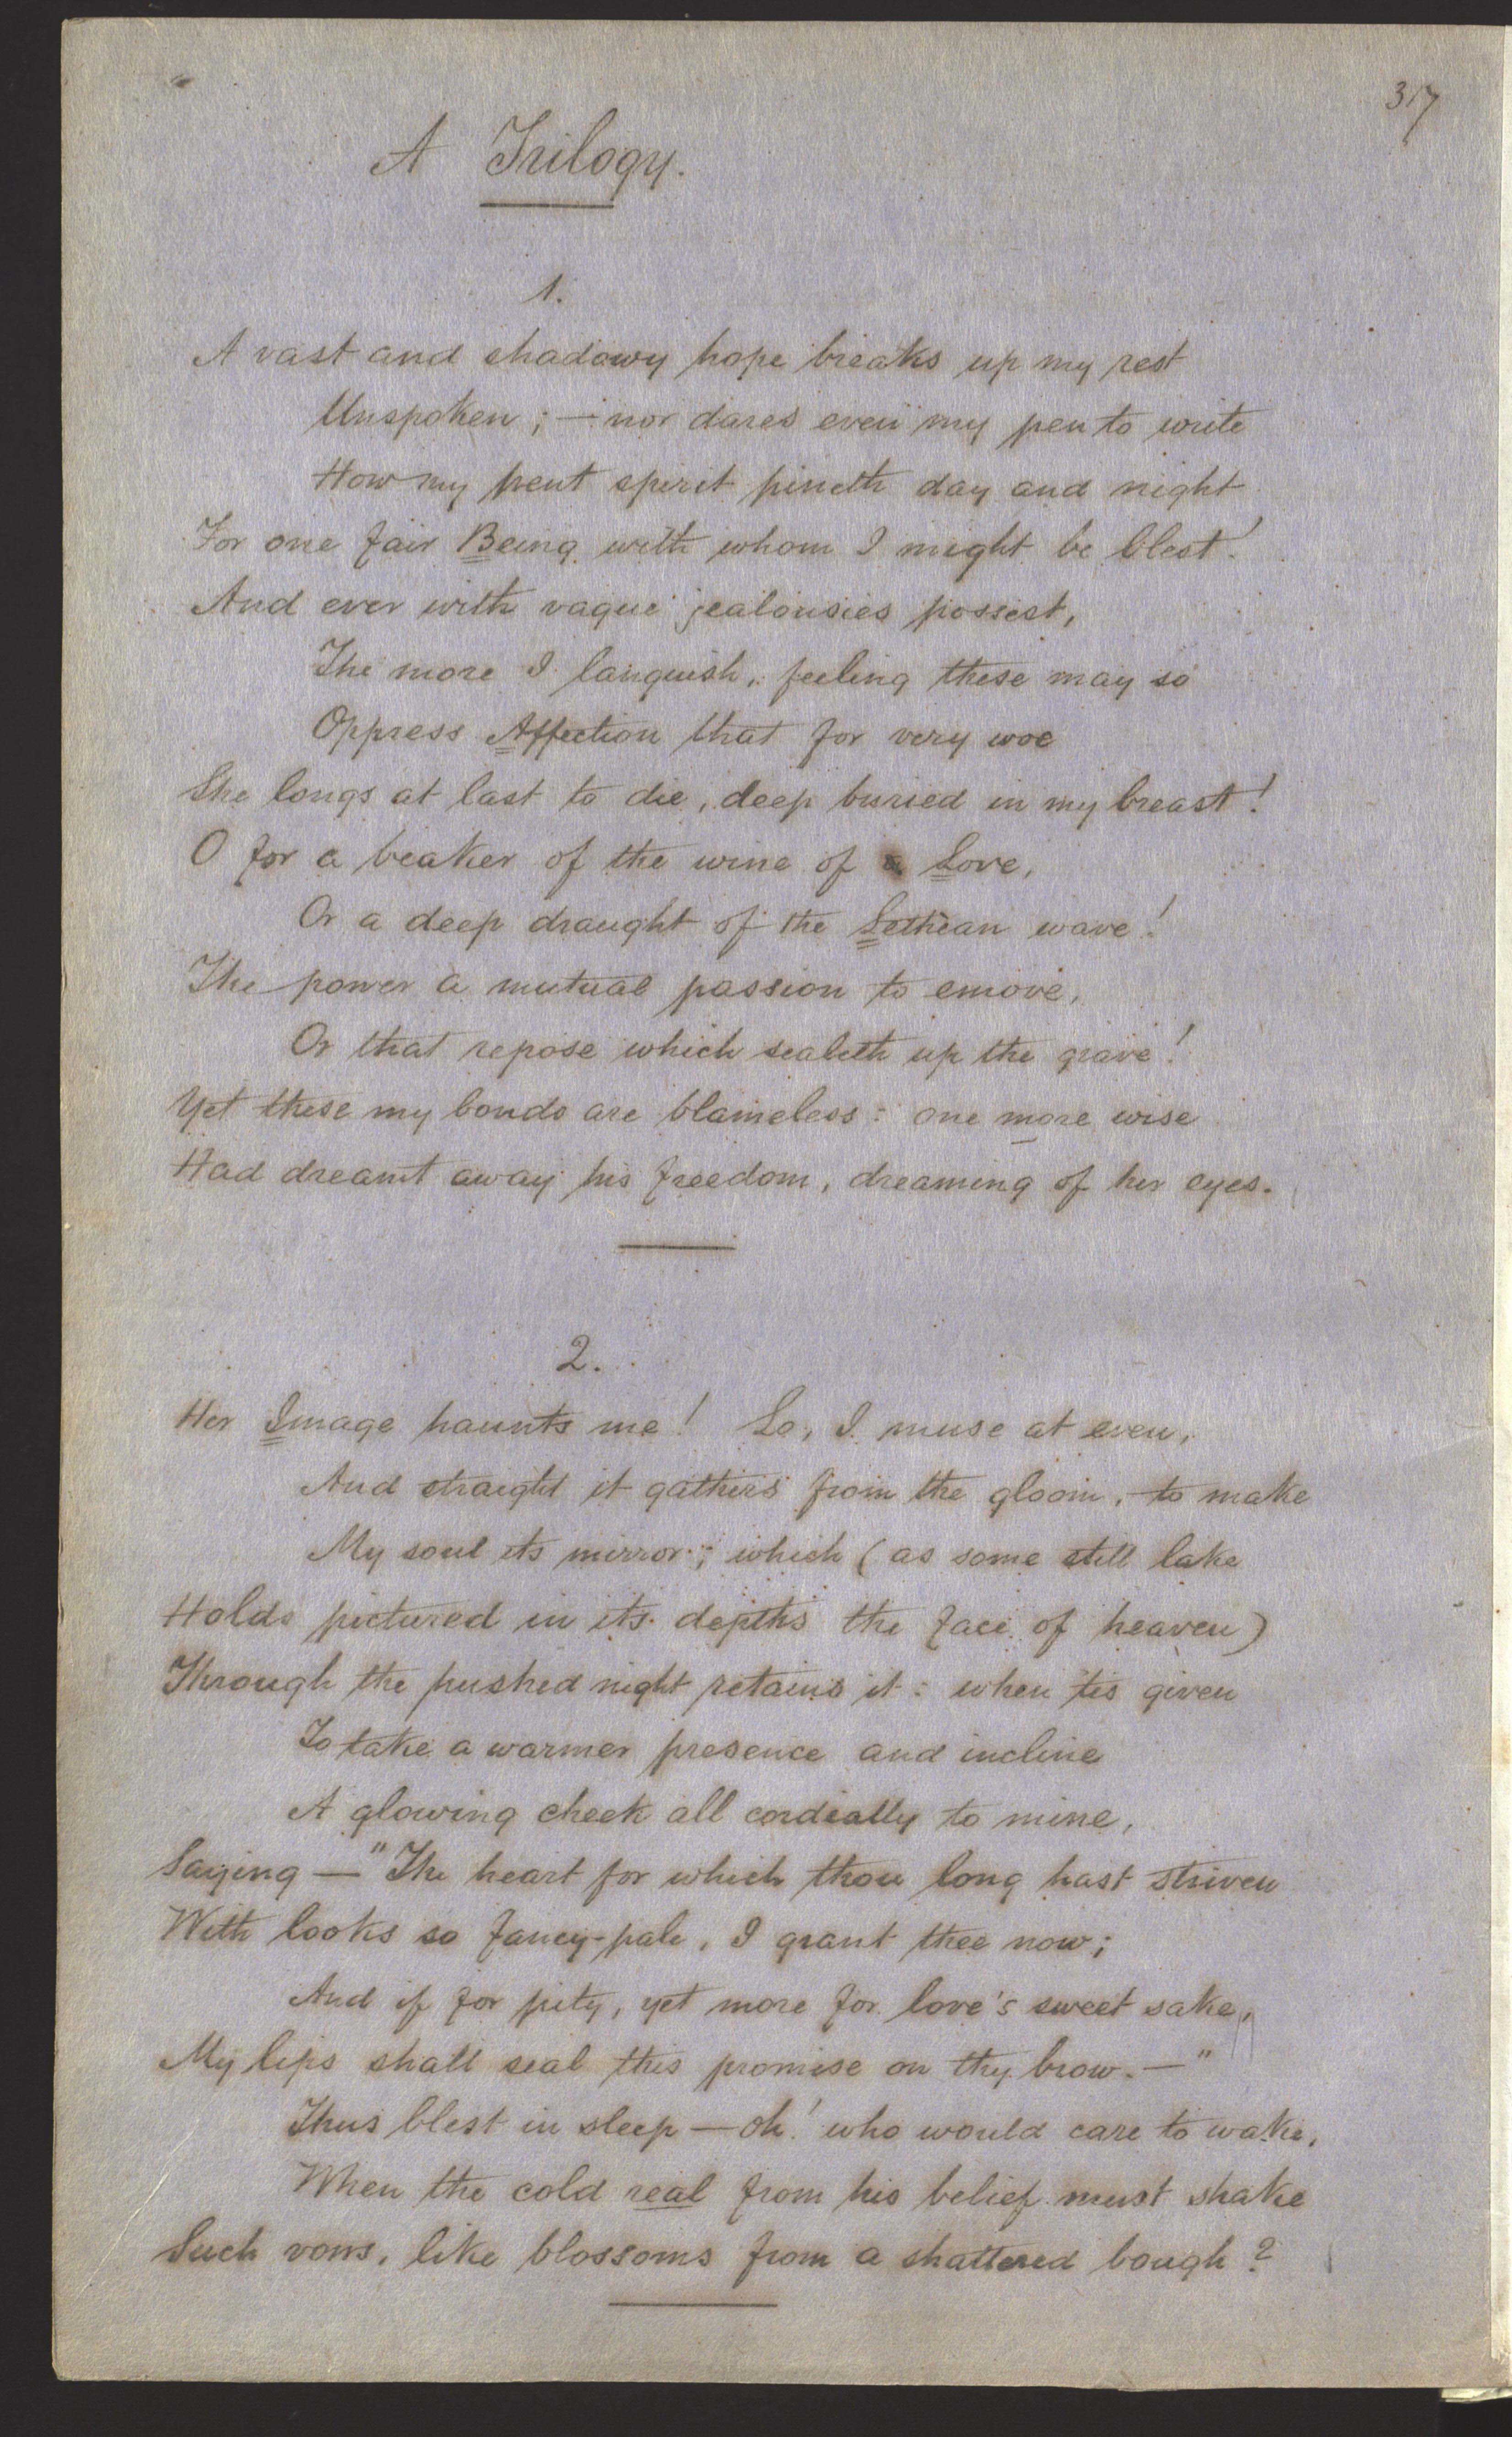 317
A Trilogy.
1.
A vast and shadowy hope breaks up my rest
Unspoken; — nor dares even my pen to write
How my pent spirit pineth day and night
For one fair Being with whom I might be blest!
And ever with vague jealousies possest,
The more I languish, feeling these may so
Oppress Affection that for very woe
She longs at last to die, deep buried in my breast!
O for a beaker of the wine of Love,
Or a deep draught of the Lethean wave!
The power a mutual passion to emove,
Or that repose which sealeth up the grave!
Yet these my bonds are blameless: one more wise
Had dreamt away his freedom, dreaming of her eyes.
2.
Her Image haunts me! Lo, I muse at even,
And straight it gathers from the gloom, to make
My soul its mirror; which (as some still lake
Holds pictured in its depths the face of heaven)
Through the hushed night retains it: when tis given
To take a warmer presence and incline
A glowing cheek all cordially to mine,
Saying — "The heart for which thou long hast striven
With looks so fancy-pale, I grant thee now;
And if for pity, yet more for love's sweet sake,
My lips shall seal this promise on thy brow. —"
Thus blest in sleep — oh! who would care to wake,
When the cold real from his belief must shake
Such vows, like blossoms from a shattered bough?